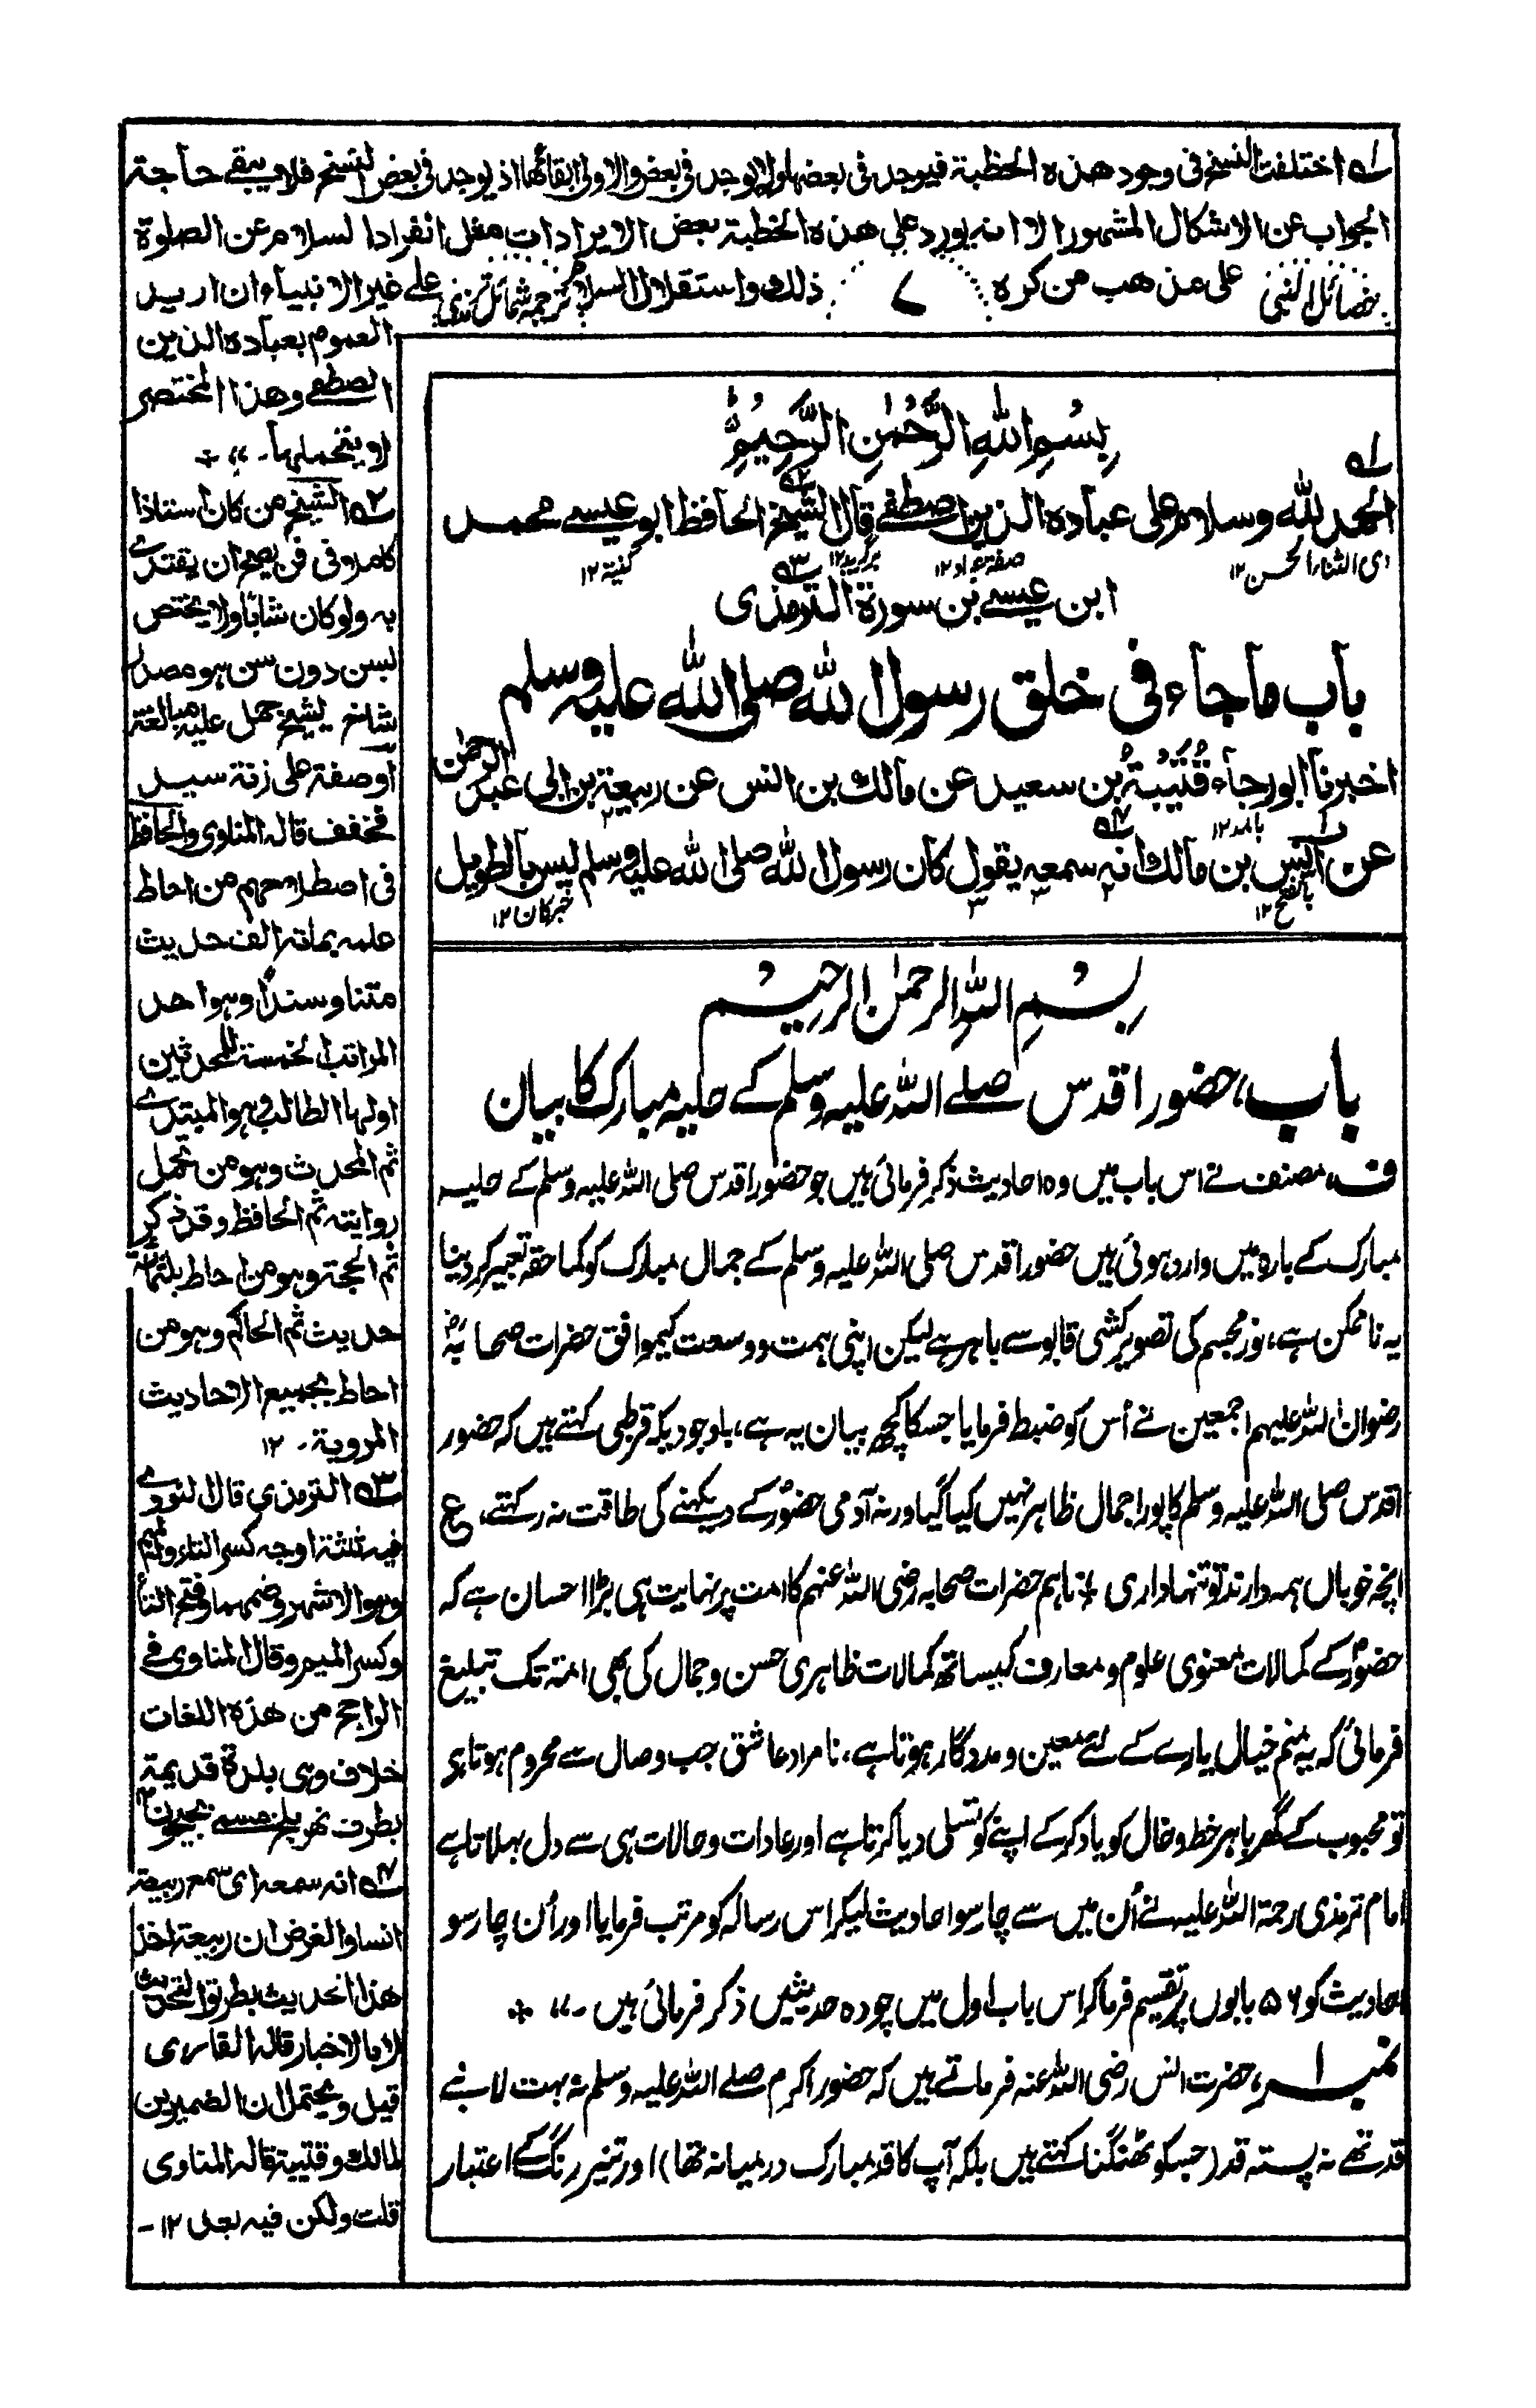 لہ اختلفت النسخ فی وجود هذه الخطبة فیوجد فی بعضہا ولا یوجد فی بعض والاولی ابقائہا اذ یوجد فی بعض النسخ فلا یبقے حاجة
الجواب عن الاشکال المشہور الا انہ یورد علی هذه الخطبة بعض الایرادات مثل انفراد السلام عن الصلوة
خصائل النبی علی مذهب من کرہ ۷ ذلك واستقلال السلام ترجمہ شمائل ترمذی علے غیر الانبیاء ان ارید
العموم بعبادہ الذین
اصطفے وهذا المختصر
لا یتحملہا۔
بِسْمِ اللهِ الرَّحْمٰنِ الرَّحِيْمِ
الحمد لله وسلام علی عبادہ الذین اصطفے قال الشیخ الحافظ ابو عیسے محمد
ای الثناء الحسن ۱۲ صفتہ عباد ۱۲ برگزید ۱۲ کنیتہ ۱۲
ابن عیسے بن سورة الترمذی
باب ما جاء فی خلق رسول الله صلی الله علیہ وسلم
اخبرنا ابو رجاء قُتَيْبَةُ بن سعید عن مالك بن انس عن ربیعة بن ابی عبد الرحمٰن
بالمد ۱۲
عن انس بن مالك انہ سمعہ یقول کان رسول الله صلی الله علیہ وسلم لیس بالطویل
بالفتح ۱۲ خبر کان ۱۲
بسم اللہ الرحمٰن الرحیم
باب، حضور اقدس صلے اللہ علیہ وسلم کے حلیہ مبارک کا بیان
ف، مصنف نے اس باب میں وہ احادیث ذکر فرمائی ہیں جو حضور اقدس صلی اللہ علیہ وسلم کے حلیہ
مبارک کے بارہ میں وارد ہوئی ہیں حضور اقدس صلی اللہ علیہ وسلم کے جمال مبارک کو کما حقہ تعبیر کر دینا
یہ نا ممکن ہے، نور مجسم کی تصویر کشی قابو سے باہر ہے لیکن اپنی ہمت و وسعت کیموافق حضرات صحابہ
رضوان اللہ علیہم اجمعین نے اُس کو ضبط فرمایا جسکا کچھ بیان یہ ہے، باوجودیکہ قرطبی کہتے ہیں کہ حضور
اقدس صلی اللہ علیہ وسلم کا پورا جمال ظاہر نہیں کیا گیا ورنہ آدمی حضورؐ کے دیکھنے کی طاقت نہ رکھتے، ع
انچہ خوباں ہمہ دارند تو تنہا داری ؛ تاہم حضرات صحابہ رضی اللہ عنہم کا امت پر نہایت ہی بڑا احسان ہے کہ
حضورؐ کے کمالات معنوی علوم و معارف کیساتھ کمالات ظاہری حسن و جمال کی بھی امتہ تک تبلیغ
فرمائی کہ یہ منم خیال یارے کے لئے معین و مددگار ہوتا ہے، نامراد عاشق جب وصال سے محروم ہوتا ہو
تو محبوب کے گھر باہر خط و خال کو یاد کر کے اپنے کو تسلی دیا کرتا ہے اور عادات و حالات ہی سے دل بہلاتا ہے
امام ترمذی رحمۃ اللہ علیہ نے اُن میں سے چار سو احادیث لیکر اس رسالہ کو مرتب فرمایا اور اُن چار سو
احادیث کو ۵۶ بابوں پر تقسیم فرما کر اس باب اول میں چودہ حدیثیں ذکر فرمائی ہیں ۔
نمبر ۱، حضرت انس رضی اللہ عنہ فرماتے ہیں کہ حضور اکرم صلے اللہ علیہ وسلم نہ بہت لانبے
قد تھے نہ پستہ قد (جسکو ٹھنگنا کہتے ہیں بلکہ آپ کا قد مبارک درمیانہ تھا) اور نیز رنگ کے اعتبار
۲ہ الشیخ من کان استاذا
کاملا فی فن یصح ان یقتدے
بہ ولو کان شابا ولا یختص
بسن دون سن هو مصدر
شاخ یشیخ حمل علیہ مبالغة
او صفة علی زنة سید
فخفف قالہ المناوی والحافظ
فی اصطلاحهم من احاط
علمہ بمائة الف حدیث
متنا وسنداً وهو احد
المراتب الخمسة للمحدثین
اولها الطالب هو المبتدے
ثم المحدث وهو من تحمل
روایتہ ثم الحافظ وقد ذکر
ثم الحجة وهو من احاط بثلثمائة
حدیث ثم الحاکم وهو من
احاط بجمیع الاحادیث
المرویة۔ ۱۲
۳ہ الترمذی قال النووے
فیہ ثلثة اوجہ کسر التاء والمیم
وهو الاشهر وضمهما وفتح التاء
وکسر المیم وقال المناوی فے
الراجح من هذہ اللغات
خلاف وهی بلدة قدیمة
بطرف نهر بلخ مسمے بجیحون
۴ہ انہ سمعہ ای سمع ربیعة
انسا والغرض ان ربیعة اخذ
هذا الحدیث بطریق التحدیث
لا بالاخبار قالہ القاری
قیل ویحتمل ان الضمیرین
لمالك وقتیبة قالہ المناوی
قلت ولکن فیہ بعد ۱۲۔